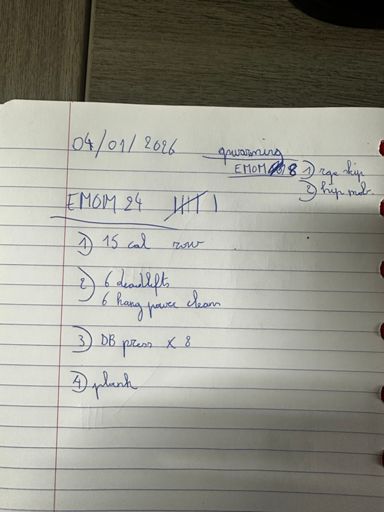 04/01/2026
opwarming
EMOM 8 1) rope skip
2) hip mob
EMOM 24
1) 15 cal row
2) 6 deadlifts
6 hang power clean
3) DB press x 8
4) plank